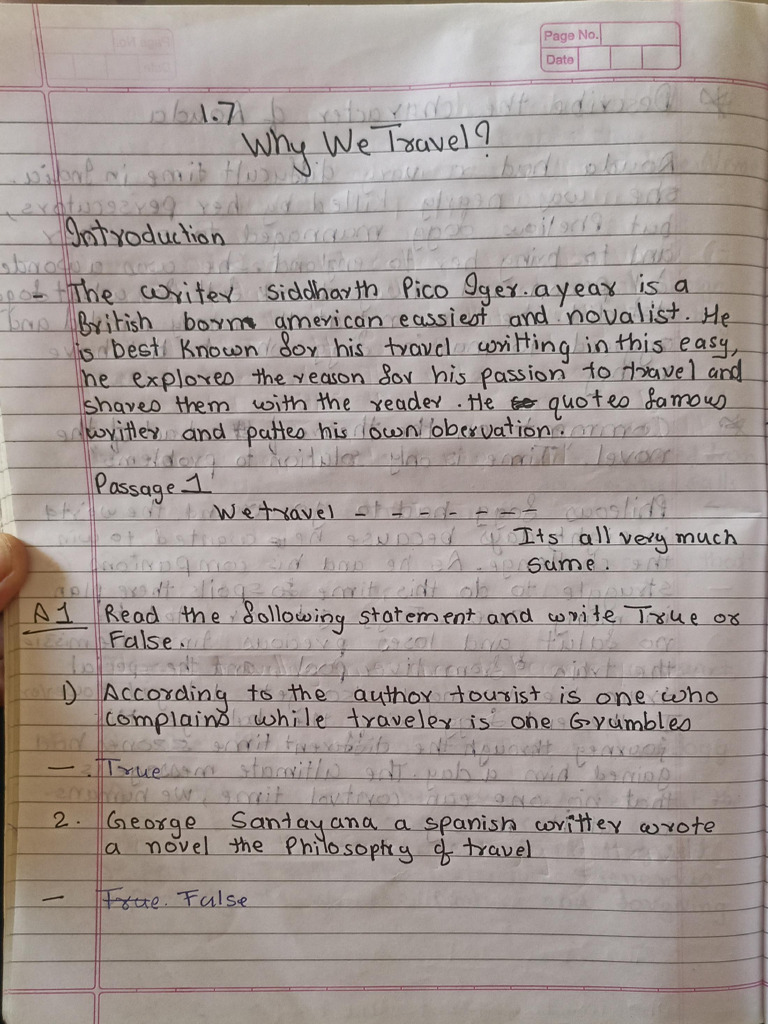 Page No.
Date
1.7
Why We Travel?
Introduction
- The writer siddharth Pico Iyer. a year is a
British born american eassiest and novalist. He
is best known for his travel writting in this easy,
he explores the reason for his passion to travel and
shares them with the reader. He so quotes famous
writter and pattes his own obervation.
Passage 1
We travel - - - - - - -
Its all very much
same.
A1 Read the following statement and write True or
False.
1) According to the author tourist is one who
complains while traveler is one Grumbles
- True
2. George Santayana a spanish writter wrote
a novel the Philosophy of travel
- True. False